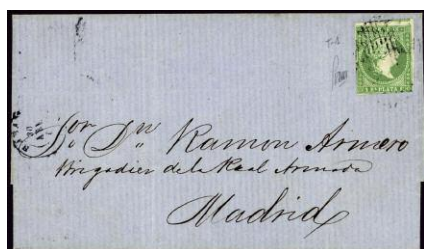 Sor Dn Ramon Armero
Brigadier de la Real Armada
Madrid